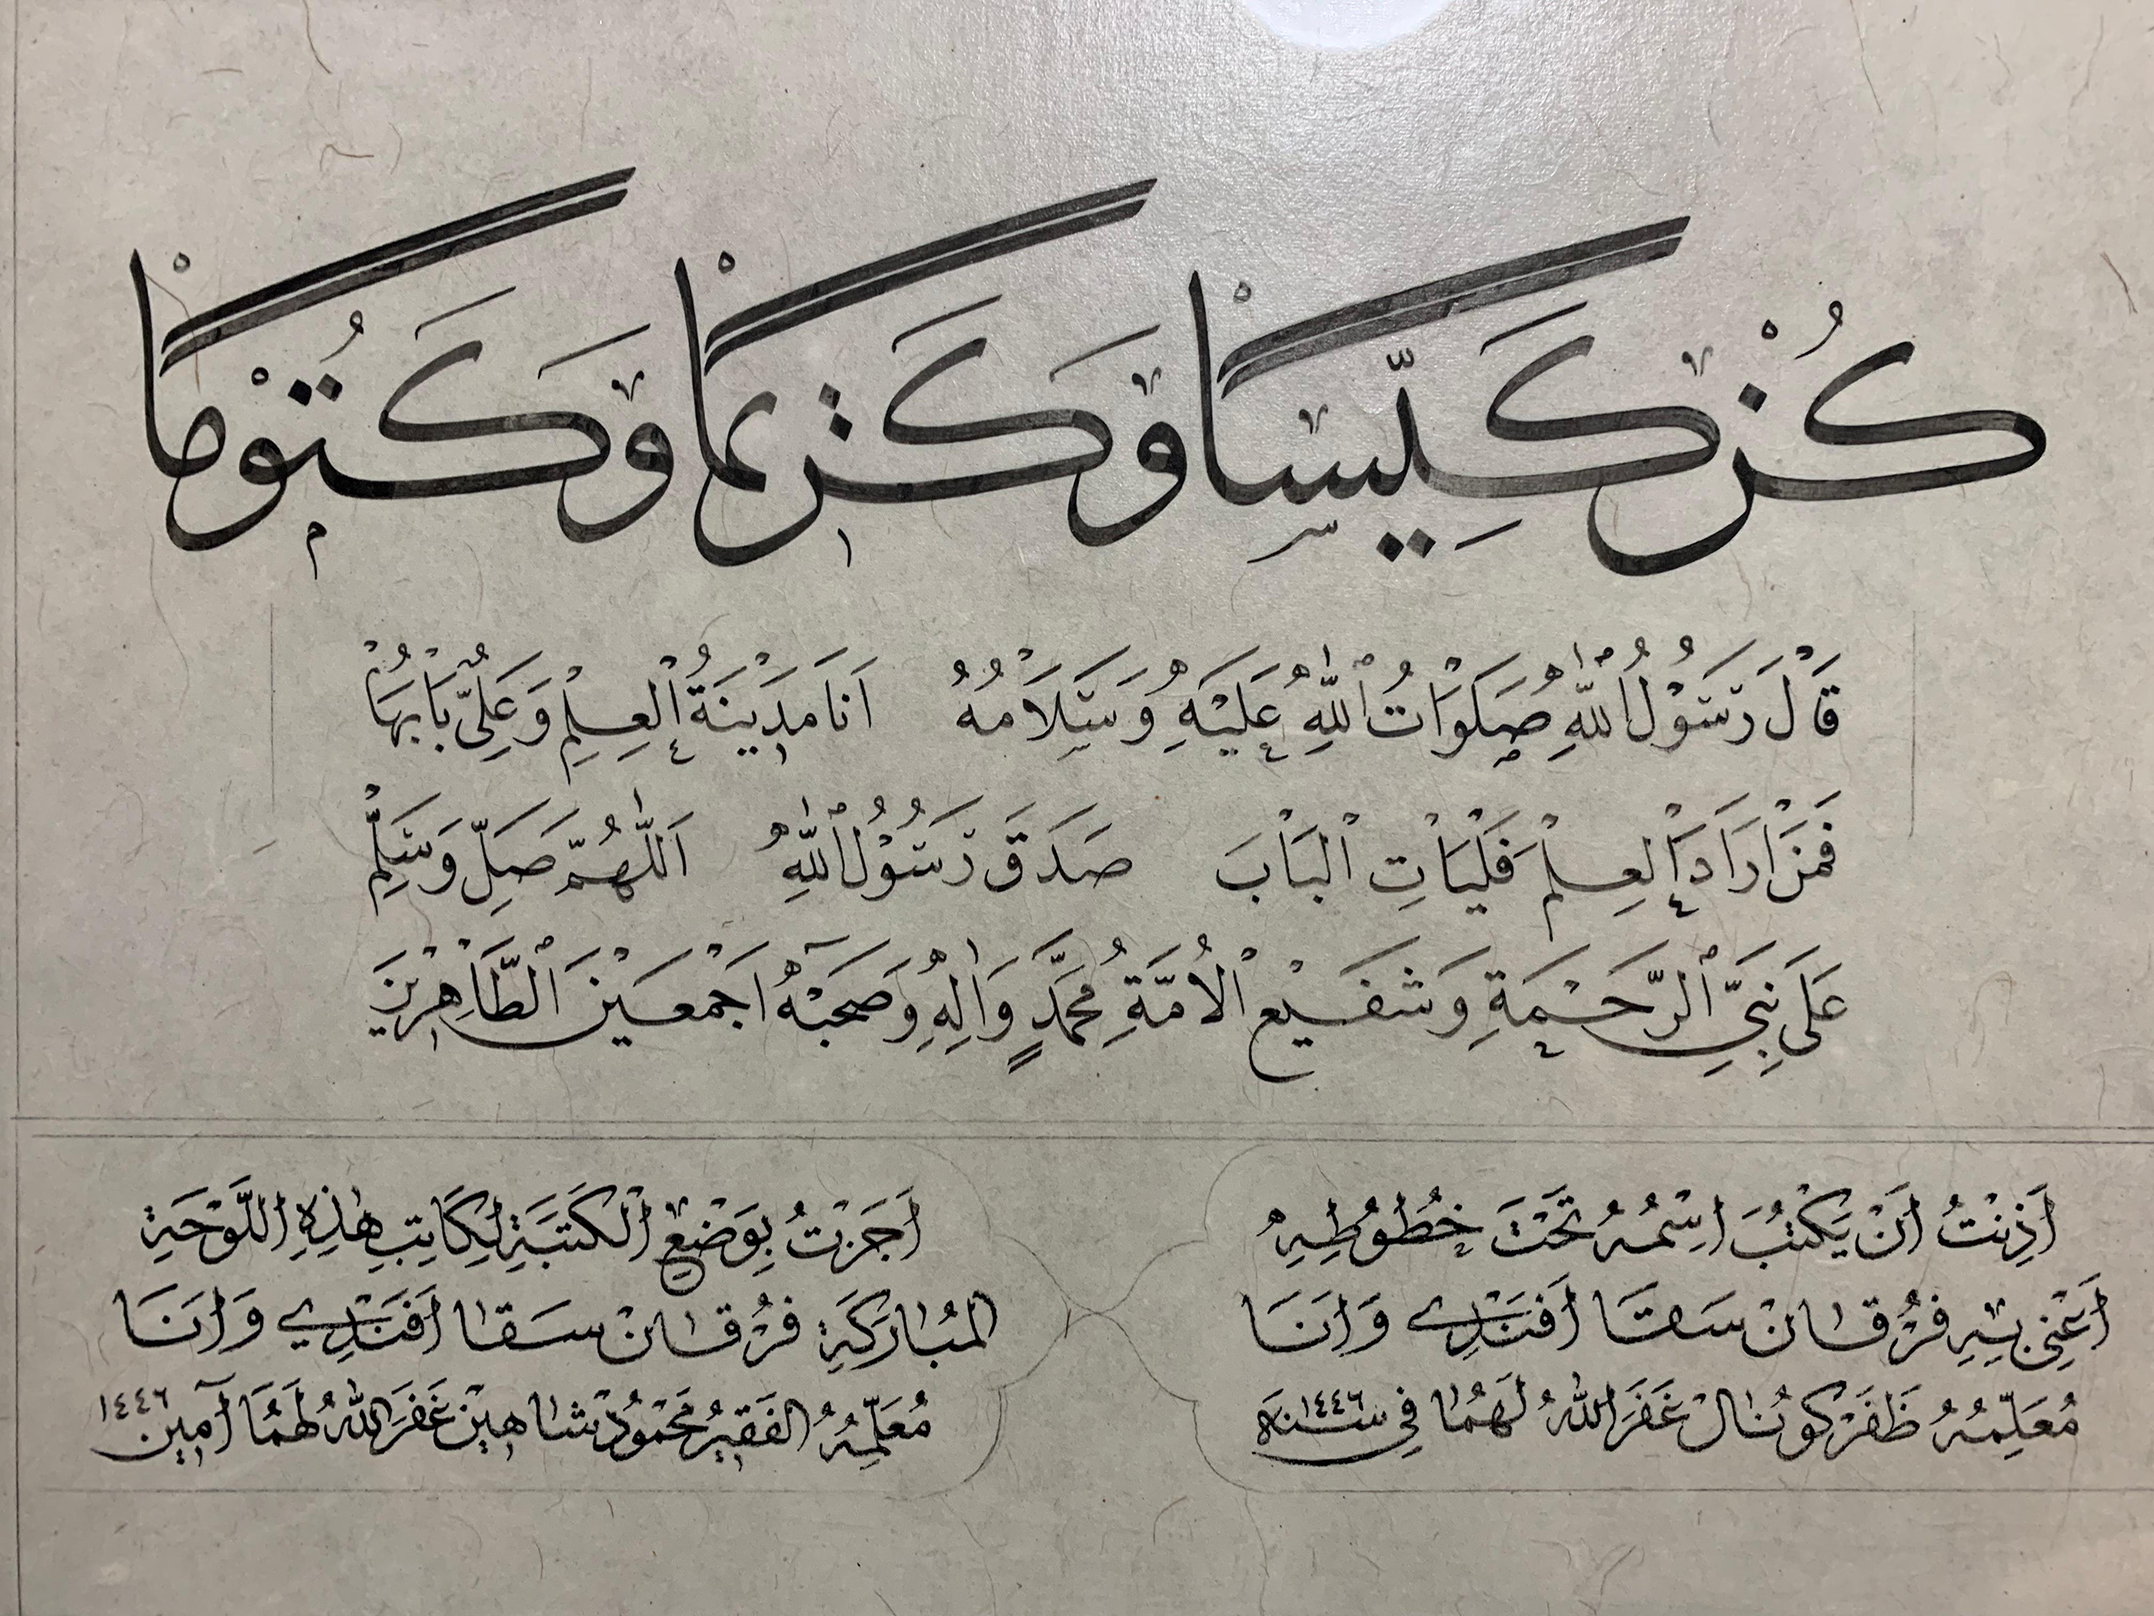 كُنْ كَيِّسًا وَكَرِيمًا وَكَتُوْمًا
قَالَ رَسُوْلُ اللهِ صَلَوَاتُ اللهِ عَلَيْهِ وَسَلَامُهُ اَنَا مَدِيْنَةُ الْعِلْمِ وَعَلِيٌّ بَابُهَا
فَمَنْ اَرَادَ الْعِلْمَ فَلْيَاْتِ الْبَابَ صَدَقَ رَسُوْلُ اللهِ اَللّٰهُمَّ صَلِّ وَسَلِّمْ
عَلَى نَبِيِّ الرَّحْمَةِ وَشَفِيْعِ الْاُمَّةِ مُحَمَّدٍ وَاٰلِهِ وَصَحْبِهِ اَجْمَعِيْنَ الطَّاهِرِيْنَ
اَذِنْتُ اَنْ يَكْتُبَ اِسْمُهُ تَحْتَ خُطُوْطِهِ
اَعْنِى بِهِ فُرْقَانْ سَقَا اَفَنْدِي وَاَنَا
مُعَلِّمُهُ ظَفَرْ كُونَالْ غَفَرَ اللهُ لَهُمَا فِى سَنَة ١٤٤٦
اَجَزْتُ بِوَضْعِ الْكَتَبَةِ لِكَاتِبِ هٰذِهِ اللَّوْحَةِ
الْمُبَارَكَةِ فُرْقَانْ سَقَا اَفَنْدِي وَاَنَا
مُعَلِّمُهُ الفَقِيرُ مَحْمُودْ شَاهِينْ غَفَرَ اللهُ لَهُمَا آمِين ١٤٤٦